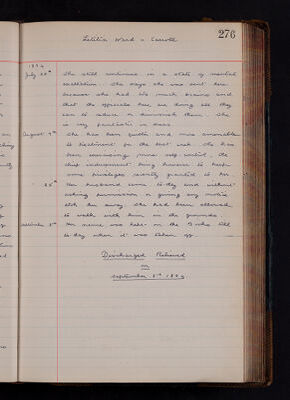 276
Letitia Ward
1894
July 28th She still continues in a state of mental
exaltation. She says she was sent here
because she had too much brains and
that the officials here are doing all they
can to reduce or diminish them. She
is very fantastic in dress.
August 9th She has been quieter and more amenable
to treatment for the last week. She has
been exercising more self-control, the
chief inducement being princess to keep
some privileges recently granted to her.
25th Her husband came to-day and without
asking permission or giving any notice
took her away. She had been allowed
to walk with him in the grounds.
September 8th Her name was kept on the Books till
to-day when it was taken off.
Discharged Relieved
on
September 8th 1894